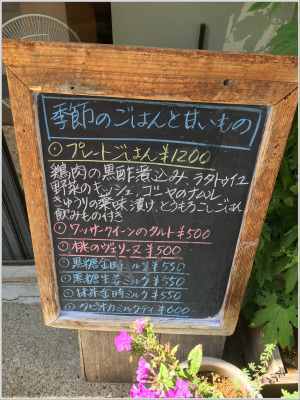 季節のごはんと甘いもの
○プレートごはん ¥1200
鶏肉の黒酢煮込み ラタトゥイユ
野菜のキッシュ、ゴーヤのナムル
きゅうりの薬味漬け、とうもろこしごはん
飲みもの付き
○ワッサークイーンのタルト ¥500
○桃のヴェリーヌ ¥500
○黒糖金時ミルク ¥550
○黒糖生姜ミルク ¥550
○抹茶金時ミルク ¥550
○タピオカミルクティ ¥600